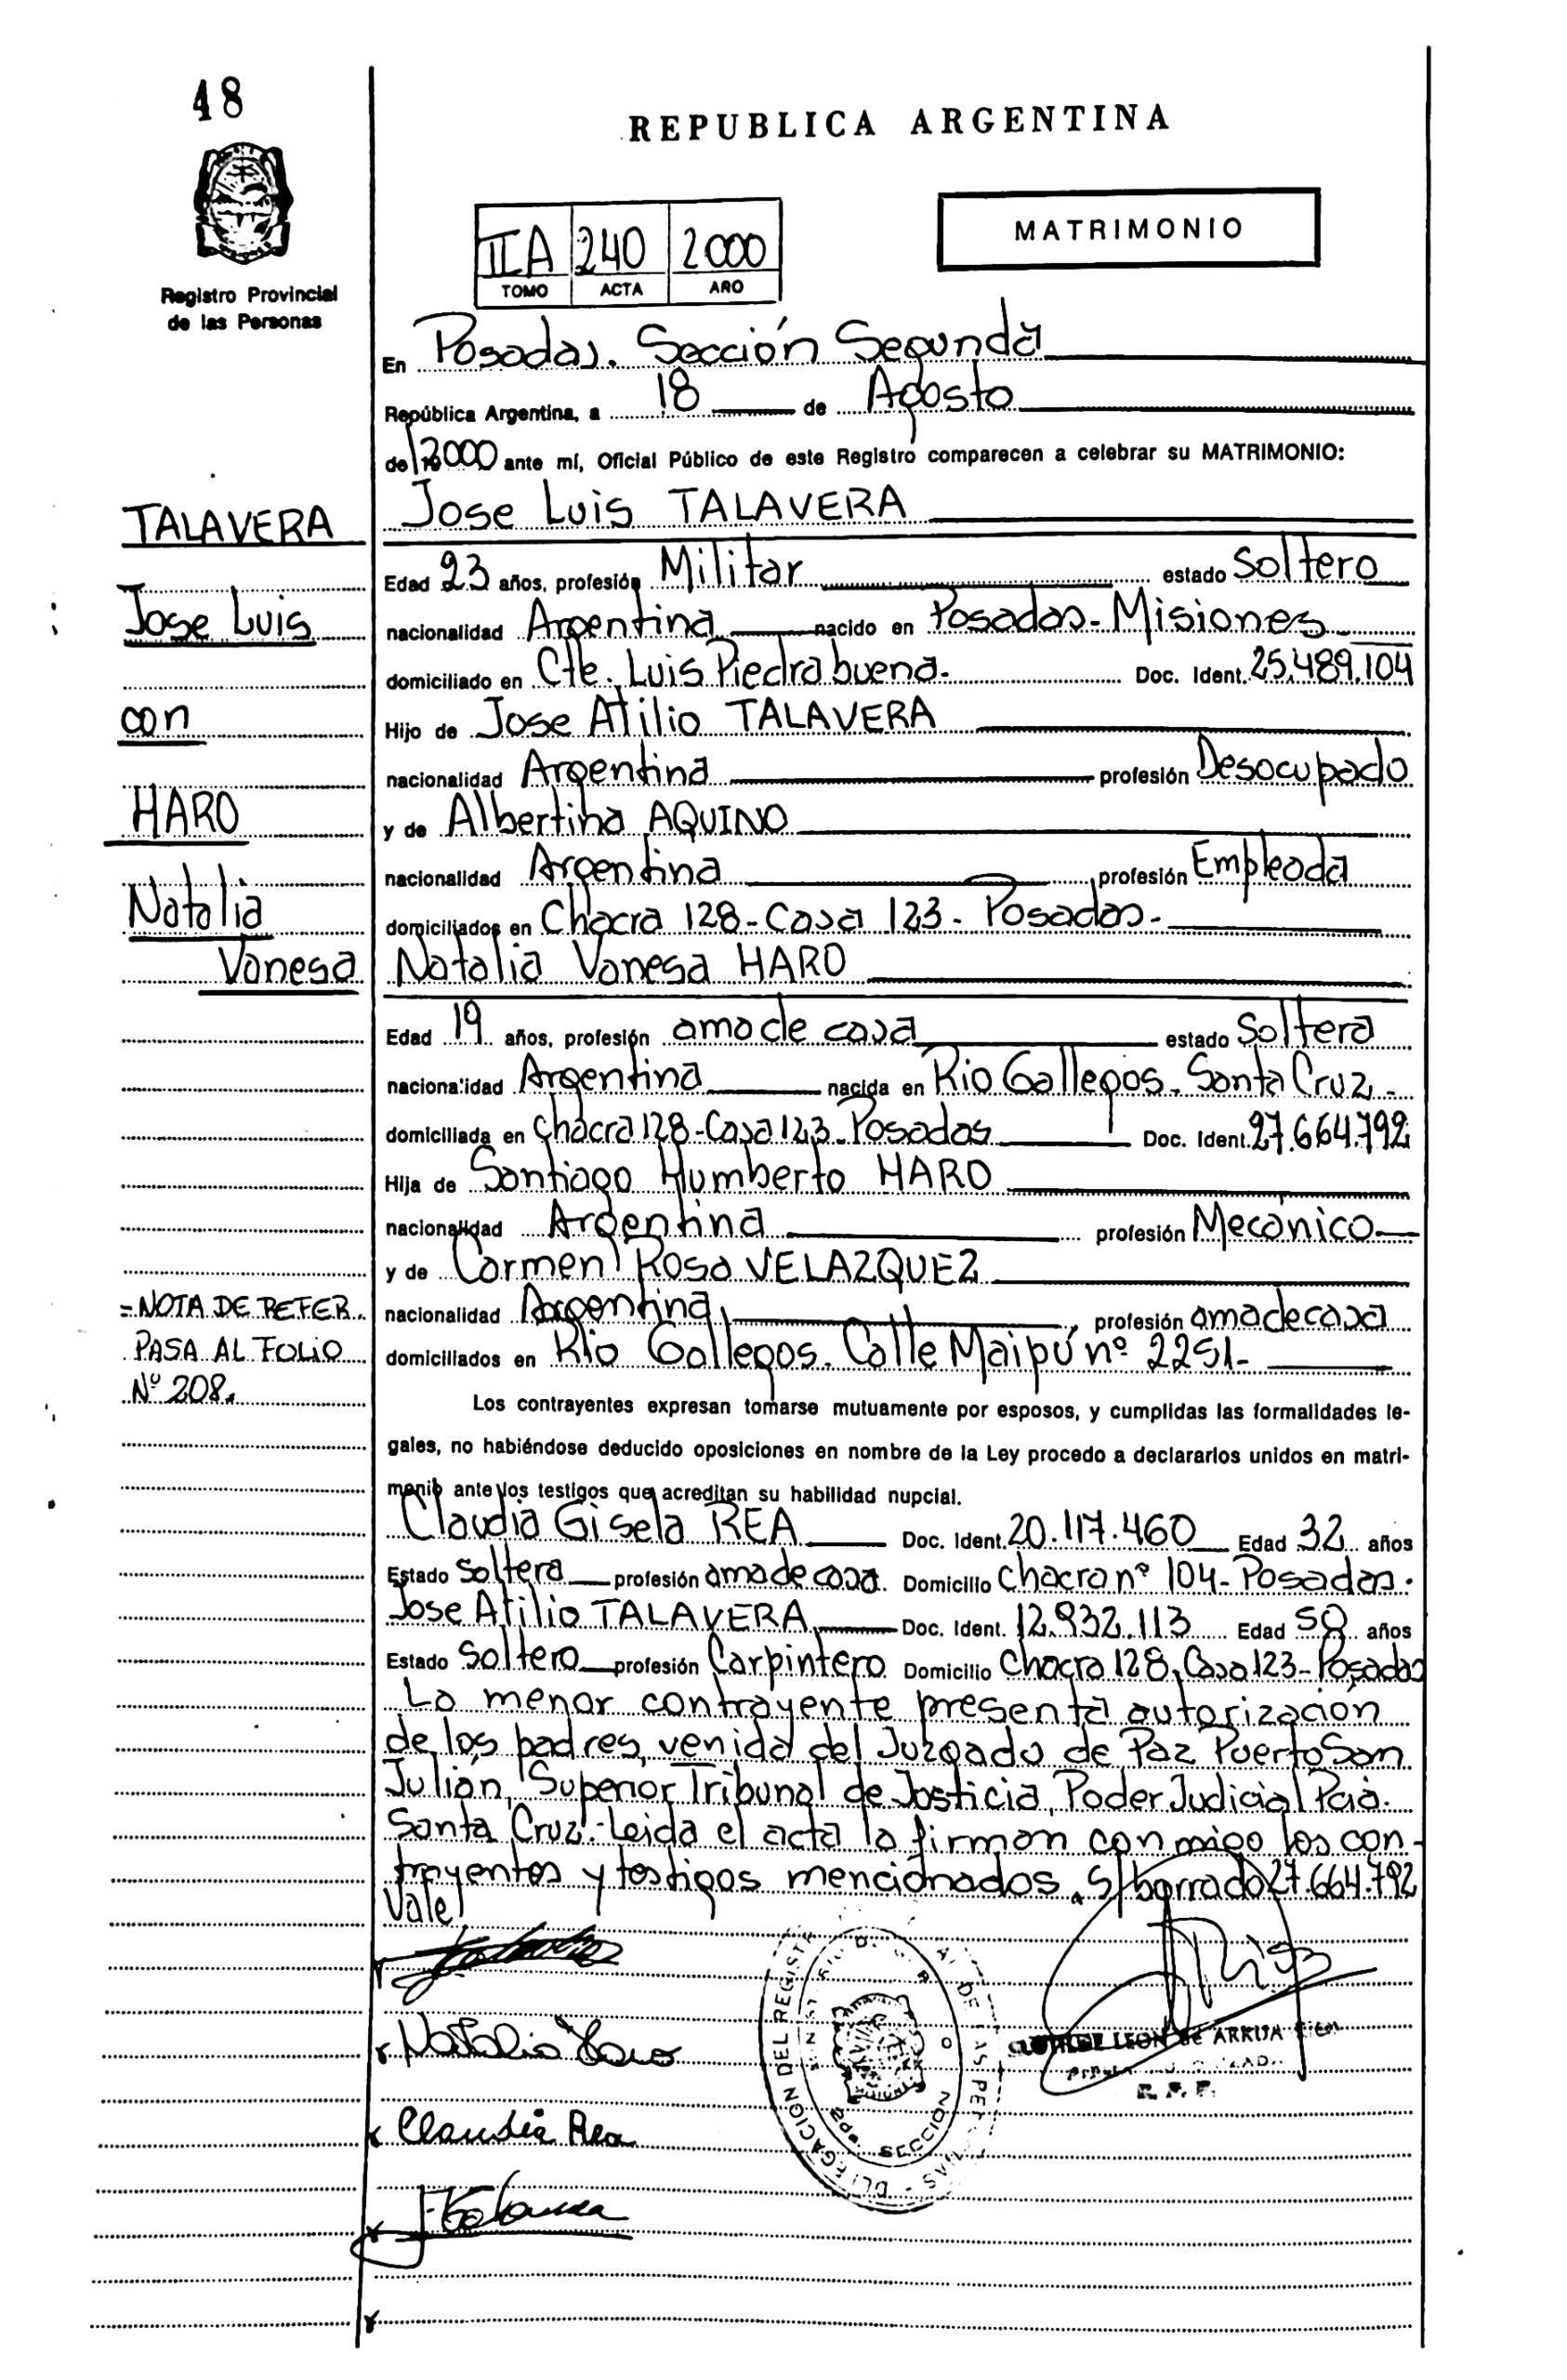 48
REPUBLICA ARGENTINA
MATRIMONIO
IIA 240 2000
TOMO ACTA AÑO
Registro Provincial
de las Personas
En Posadas. Sección Segunda
República Argentina, a 18 de Agosto
de 2000 ante mí, Oficial Público de este Registro comparecen a celebrar su MATRIMONIO:
TALAVERA
Jose Luis
con
HARO
Natalia
Vanesa
Jose Luis TALAVERA
Edad 23 años, profesión Militar estado Soltero
nacionalidad Argentina nacido en Posadas-Misiones
domiciliado en Cte. Luis Piedrabuena. Doc. Ident. 25.489.104
Hijo de Jose Atilio TALAVERA
nacionalidad Argentina profesión Desocupado
y de Albertina AQUINO
nacionalidad Argentina profesión Empleada
domiciliados en Chacra 128-Casa 123-Posadas-
Natalia Vanesa HARO
Edad 19 años, profesión ama de casa estado Soltera
nacionalidad Argentina nacida en Rio Gallegos-Santa Cruz-
domiciliada en Chacra 128-Casa 123-Posadas Doc. Ident. 27.664.792
Hija de Santiago Humberto HARO
nacionalidad Argentina profesión Mecánico
y de Carmen Rosa VELAZQUEZ
nacionalidad Argentina profesión ama de casa
domiciliados en Rio Gallegos. Calle Maipú nº 2251-
=NOTA DE REFER.
PASA AL FOLIO
Nº 208.
Los contrayentes expresan tomarse mutuamente por esposos, y cumplidas las formalidades le-
gales, no habiéndose deducido oposiciones en nombre de la Ley procedo a declararlos unidos en matri-
monio ante los testigos que acreditan su habilidad nupcial.
Claudia Gisela REA Doc. Ident. 20.117.460 Edad 32 años
Estado Soltera profesión ama de casa. Domicilio Chacra nº 104-Posadas.
Jose Atilio TALAVERA Doc. Ident. 12.932.113 Edad 50 años
Estado Soltero profesión Carpintero Domicilio Chacra 128, Casa 123-Posadas
La menor contrayente presenta autorizacion
de los padres, venida del Juzgado de Paz Puerto San
Julián, Superior Tribunal de Justicia, Poder Judicial Pcia.
Santa Cruz.-Leida el acta la firman conmigo los con-
trayentes y testigos mencionados. S/borrado 27.664.792
Vale
Natalia Haro
Claudia Rea
DELEGACION DEL REGISTR DE LAS PER
SECCION
LEON de ARRUA
R. P. P.